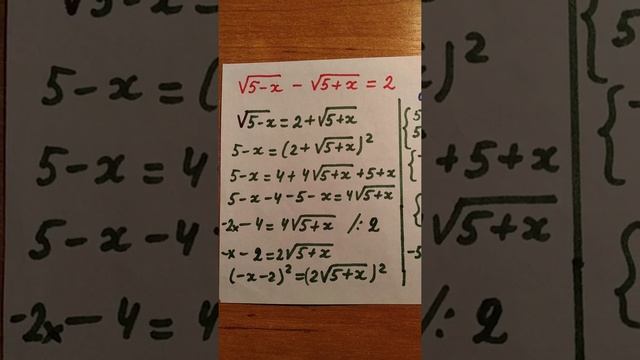 √5-x - √5+x = 2
√5-x = 2+√5+x
5-x = (2+√5+x)²
5-x = 4+4√5+x +5+x
5-x-4-5-x = 4√5+x
-2x-4 = 4√5+x /:2
-x-2 = 2√5+x
(-x-2)² = (2√5+x)²